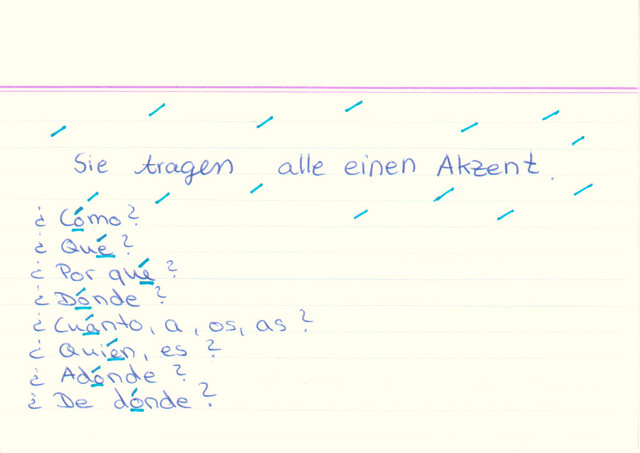 Sie tragen alle einen Akzent.
¿ Cómo?
¿ Qué?
¿ Por qué?
¿ Dónde?
¿ Cuánto, a, os, as?
¿ Quién, es?
¿ Adónde?
¿ De dónde?